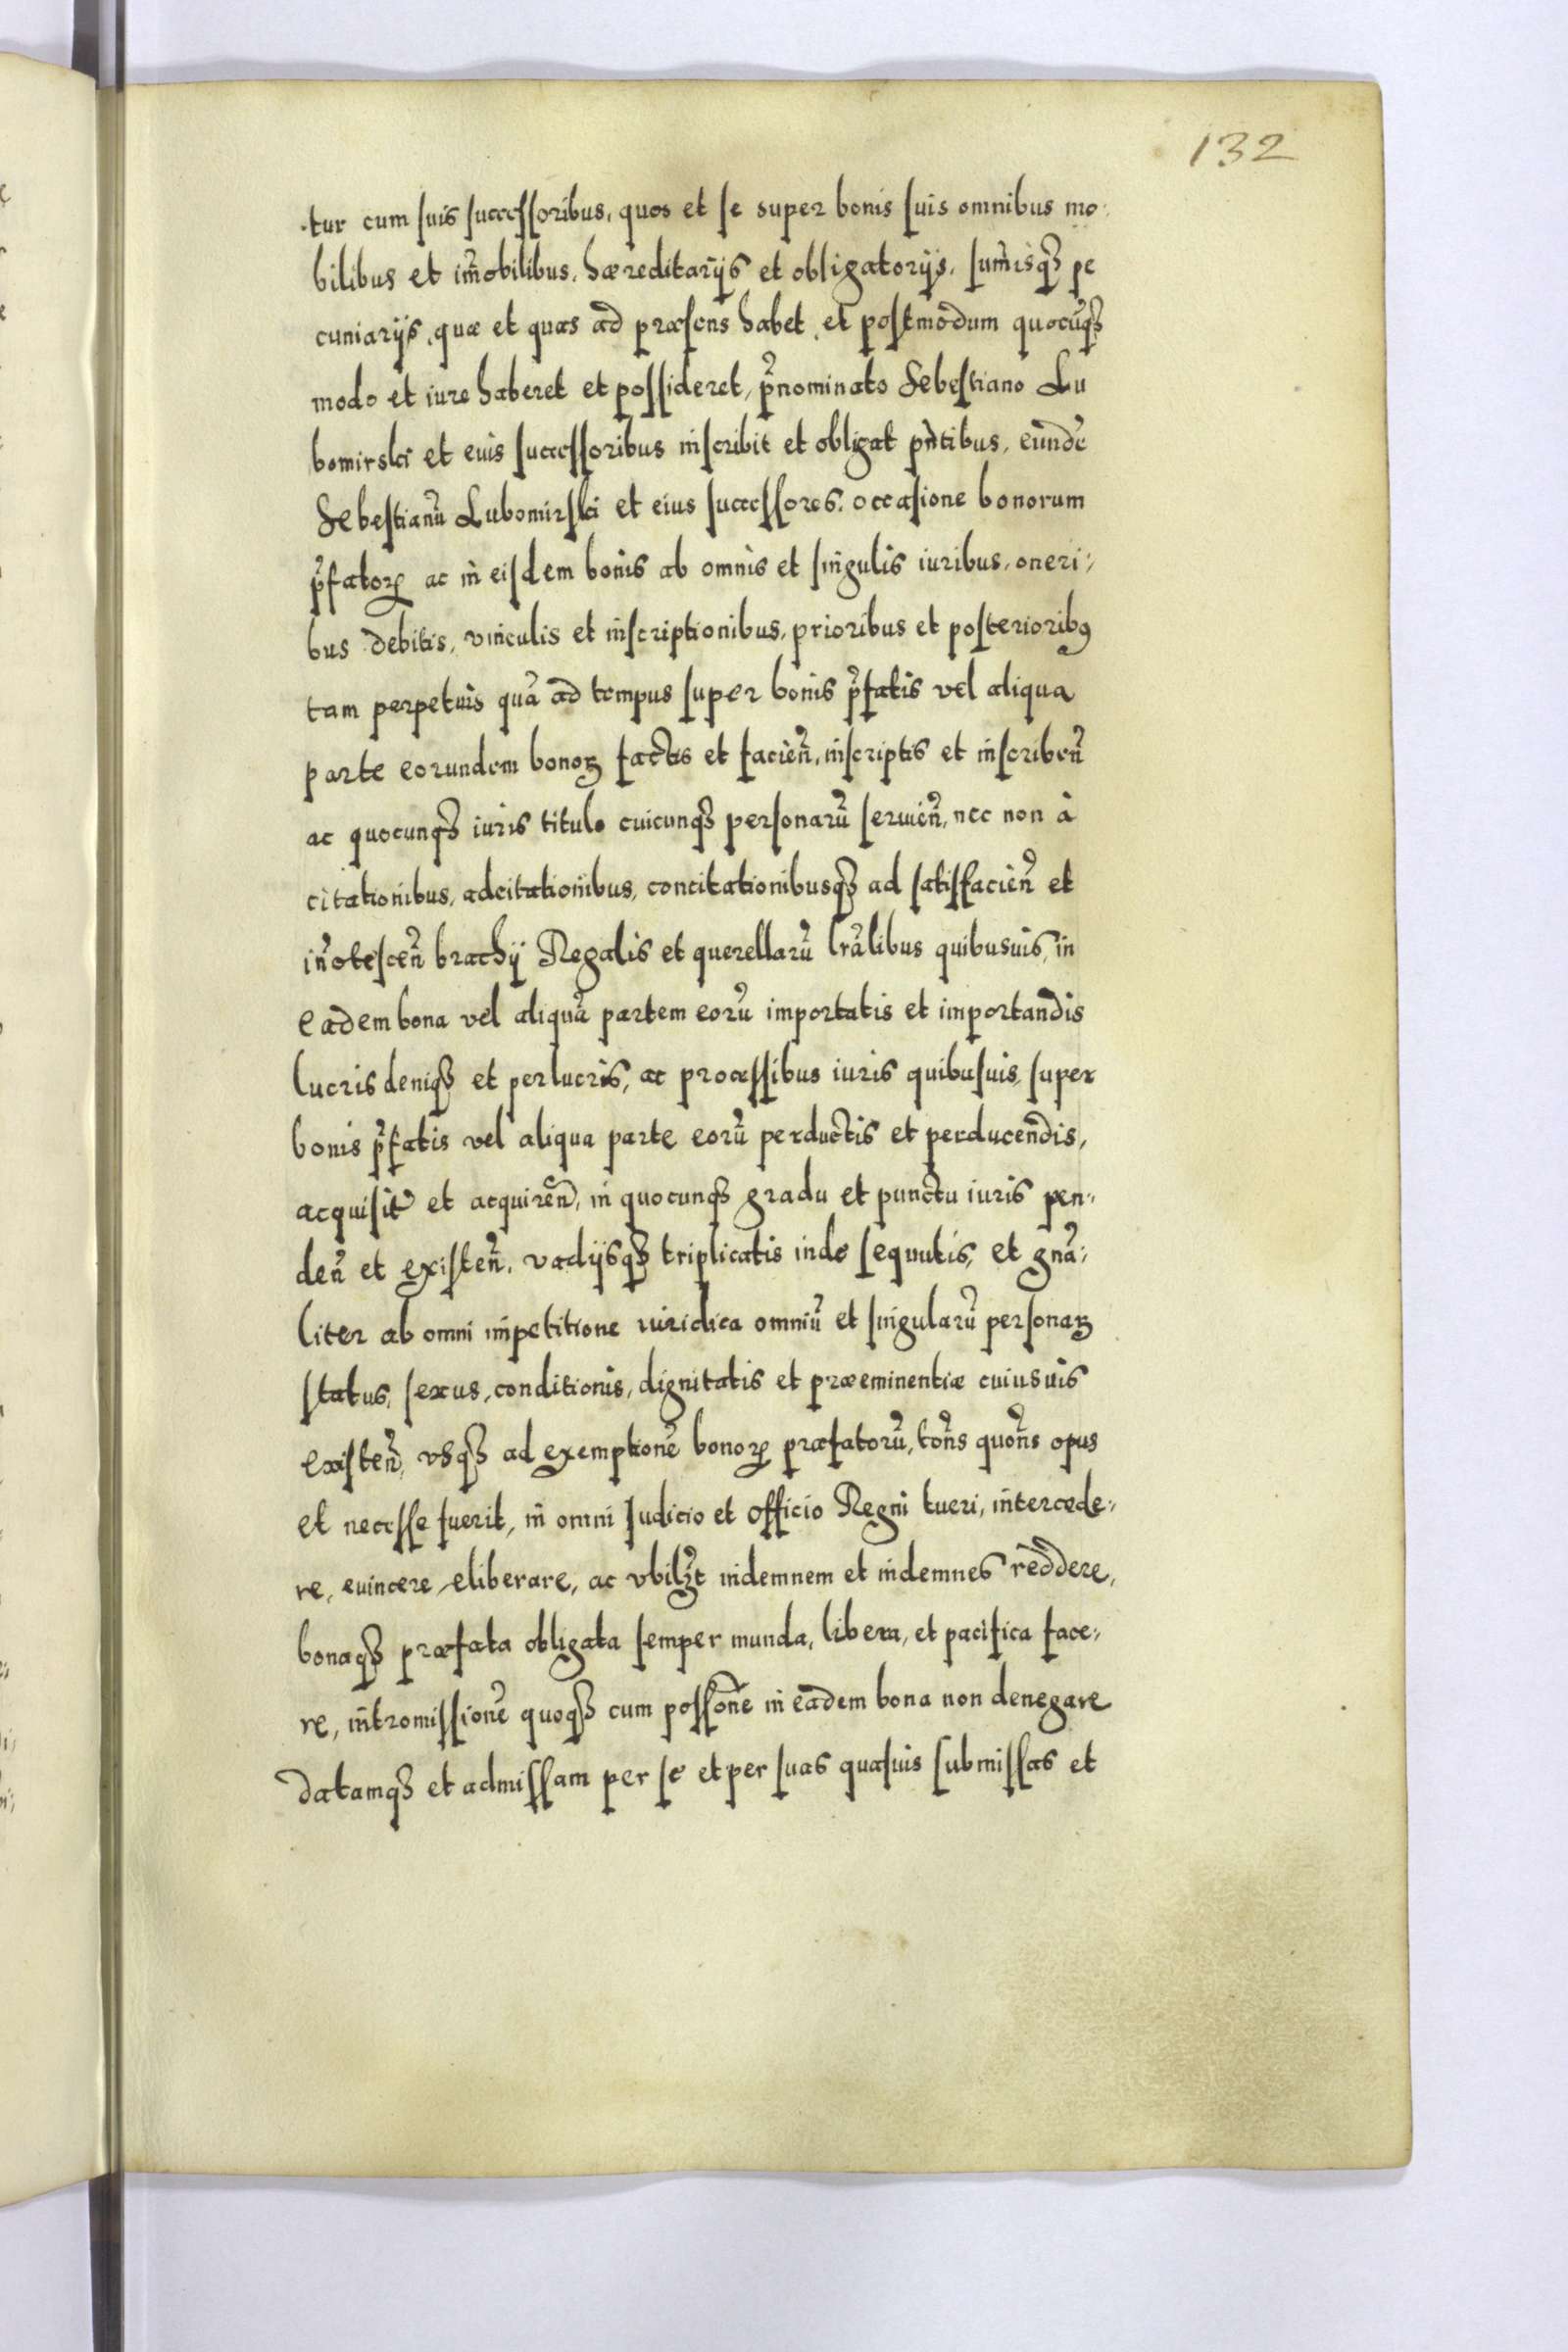 132
tur cum suis successoribus, quos et se super bonis suis omnibus mo-
bilibus et im̃obilibus, hæreditarijs et obligatorijs, sum̃isqȝ pe
cuniarijs, quæ et quas ad præsens habet, et postmodum quocũqȝ
modo et iure haberet et possideret, p̃nominato Sebestiano Lu
bomirski et eius successoribus inscribit et obligat pñtibus, eundẽ
Sebestianũ Lubomirski et eius successores, occasione bonorum
p̃fatoꝝ ac in eisdem bonis ab omnis et singulis iuribus, oneri-
bus debitis, vinculis et inscriptionibus, prioribus et posterioribꝰ
tam perpetuis quã ad tempus super bonis p̃fatis vel aliqua
parte eorundem bonoꝝ factis et facieñ, inscriptis et inscribeñ
ac quocunqȝ iuris titulo cuicunqȝ personarũ seruieñ, nec non à
citationibus, adcitationibus, concitationibusqȝ ad satisfacieñ et
iñotesceñ brachij Regalis et querellarũ lrãlibus quibusuis, in
eadem bona vel aliquã partem eorũ importatis et importandis
lucris deniqȝ et perlucris, ac processibus iuris quibusuis, super
bonis p̃fatis vel aliqua parte eorũ perductis et perducendis,
acquisit̃ et acquireñd, in quocunqȝ gradu et punctu iuris pen-
deñ et existeñ, vadijsqȝ triplicatis inde sequutis, et gnã-
liter ab omni impetitione iuridica omniũ et singularũ personaꝝ
status, sexus, conditionis, dignitatis et præeminentiæ cuiusuis
existeñ, vsqȝ ad exemptionẽ bonoꝝ præfatorũ, tot̃ns quot̃ns opus
et necesse fuerit, in omni Iudicio et Officio Regni tueri, intercede-
re, euincere, eliberare, ac vbilꝫt indemnem et indemnes reddere,
bonaqȝ præfata obligata semper munda, libera, et pacifica face-
re, intromissionẽ quoqȝ cum possoñe in eadem bona non denegare
datamqȝ et admissam per se et per suas quasuis submissas et